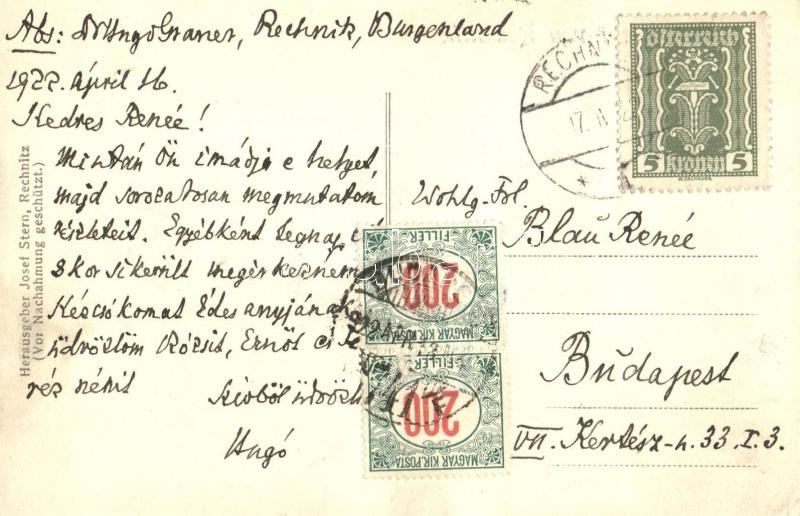 Abs: Dr Ungó Graner, Rechnitz, Burgenland
1922. ápril 16.
Kedves Renée!
Mintán Ön imádja e helyet,
majd sorozatosan megmutatom
részleteit. Egyébként tegnap
8 kor sikerült megérkeznem
Kézcsókomat Édes anyjának
üdvözlöm Rózsit, Ernőt
réz nénit
Szívből üdvözli
Hugó
Herausgeber Josef Stern, Rechnitz
(Vor Nachahmung geschützt.)
RECHN
17. II
Österreich
5 Kronen 5
Wohlg. Frl.
Blau Renée
Budapest
VII. Kertész-u. 33. I. 3.
200
FILLÉR
MAGYAR KIR. POSTA
200
FILLÉR
MAGYAR KIR. POSTA